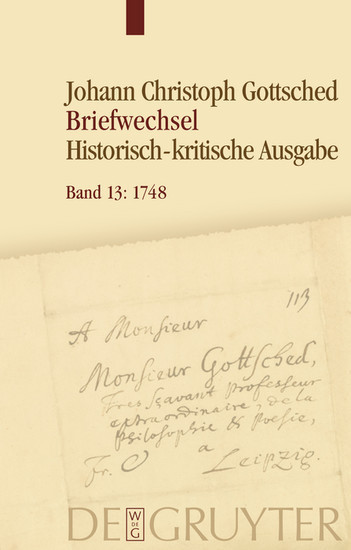 Johann Christoph Gottsched
Briefwechsel
Historisch-kritische Ausgabe
Band 13: 1748
113
A Monsieur
Monsieur Gottsched,
Tres sçavant Professeur
extraordinaire, de la
Philosophie & Poesie,
Fr. a
Leipzig.
DE GRUYTER
W
DE
G